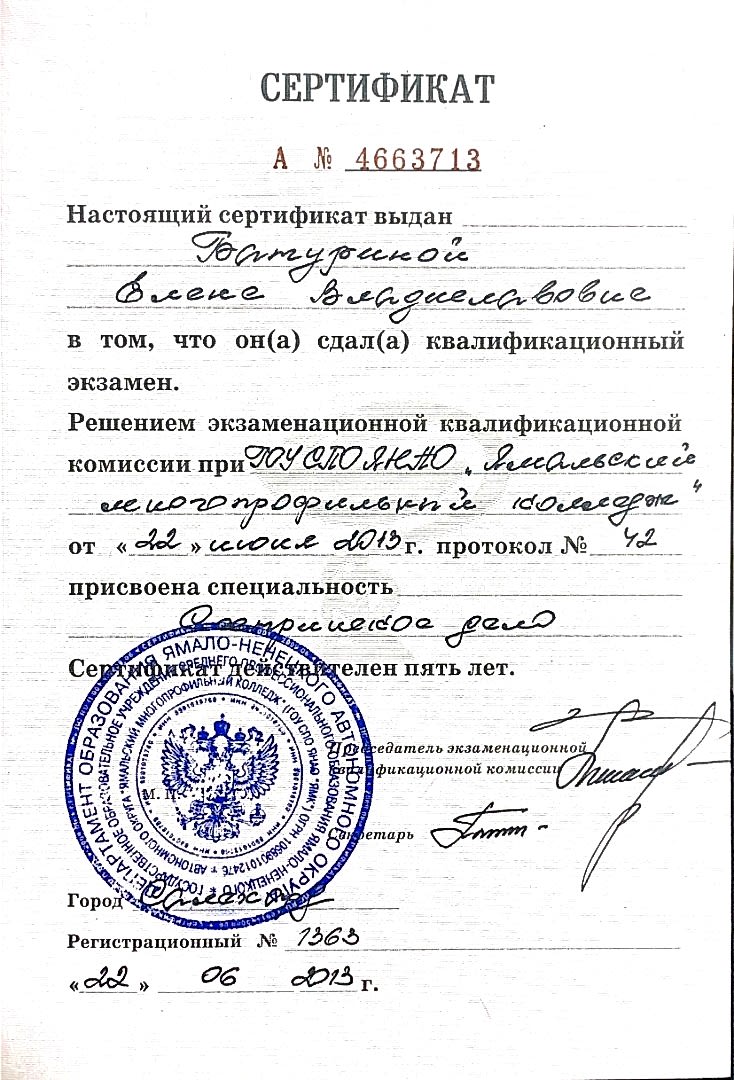 СЕРТИФИКАТ
А № 4663713
Настоящий сертификат выдан
Батуриной
Елене Владиславовне
в том, что он(а) сдал(а) квалификационный
экзамен.
Решением экзаменационной квалификационной
комиссии при ГОУ СПО ЯНАО "Ямальский
многопрофильный колледж"
от «22» июня 2013 г. протокол № 42
присвоена специальность
Сестринское дело
Сертификат действителен пять лет.
ДЕПАРТАМЕНТ ОБРАЗОВАНИЯ ЯМАЛО-НЕНЕЦКОГО АВТОНОМНОГО ОКРУГА
ГОСУДАРСТВЕННОЕ ОБРАЗОВАТЕЛЬНОЕ УЧРЕЖДЕНИЕ СРЕДНЕГО ПРОФЕССИОНАЛЬНОГО ОБРАЗОВАНИЯ ЯМАЛО-НЕНЕЦКОГО
АВТОНОМНОГО ОКРУГА "ЯМАЛЬСКИЙ МНОГОПРОФИЛЬНЫЙ КОЛЛЕДЖ" (ГОУ СПО ЯНАО "ЯМК")
Председатель экзаменационной
квалификационной комиссии
М. П.
Секретарь
Город Салехард
Регистрационный № 1363
«22» 06 2013 г.